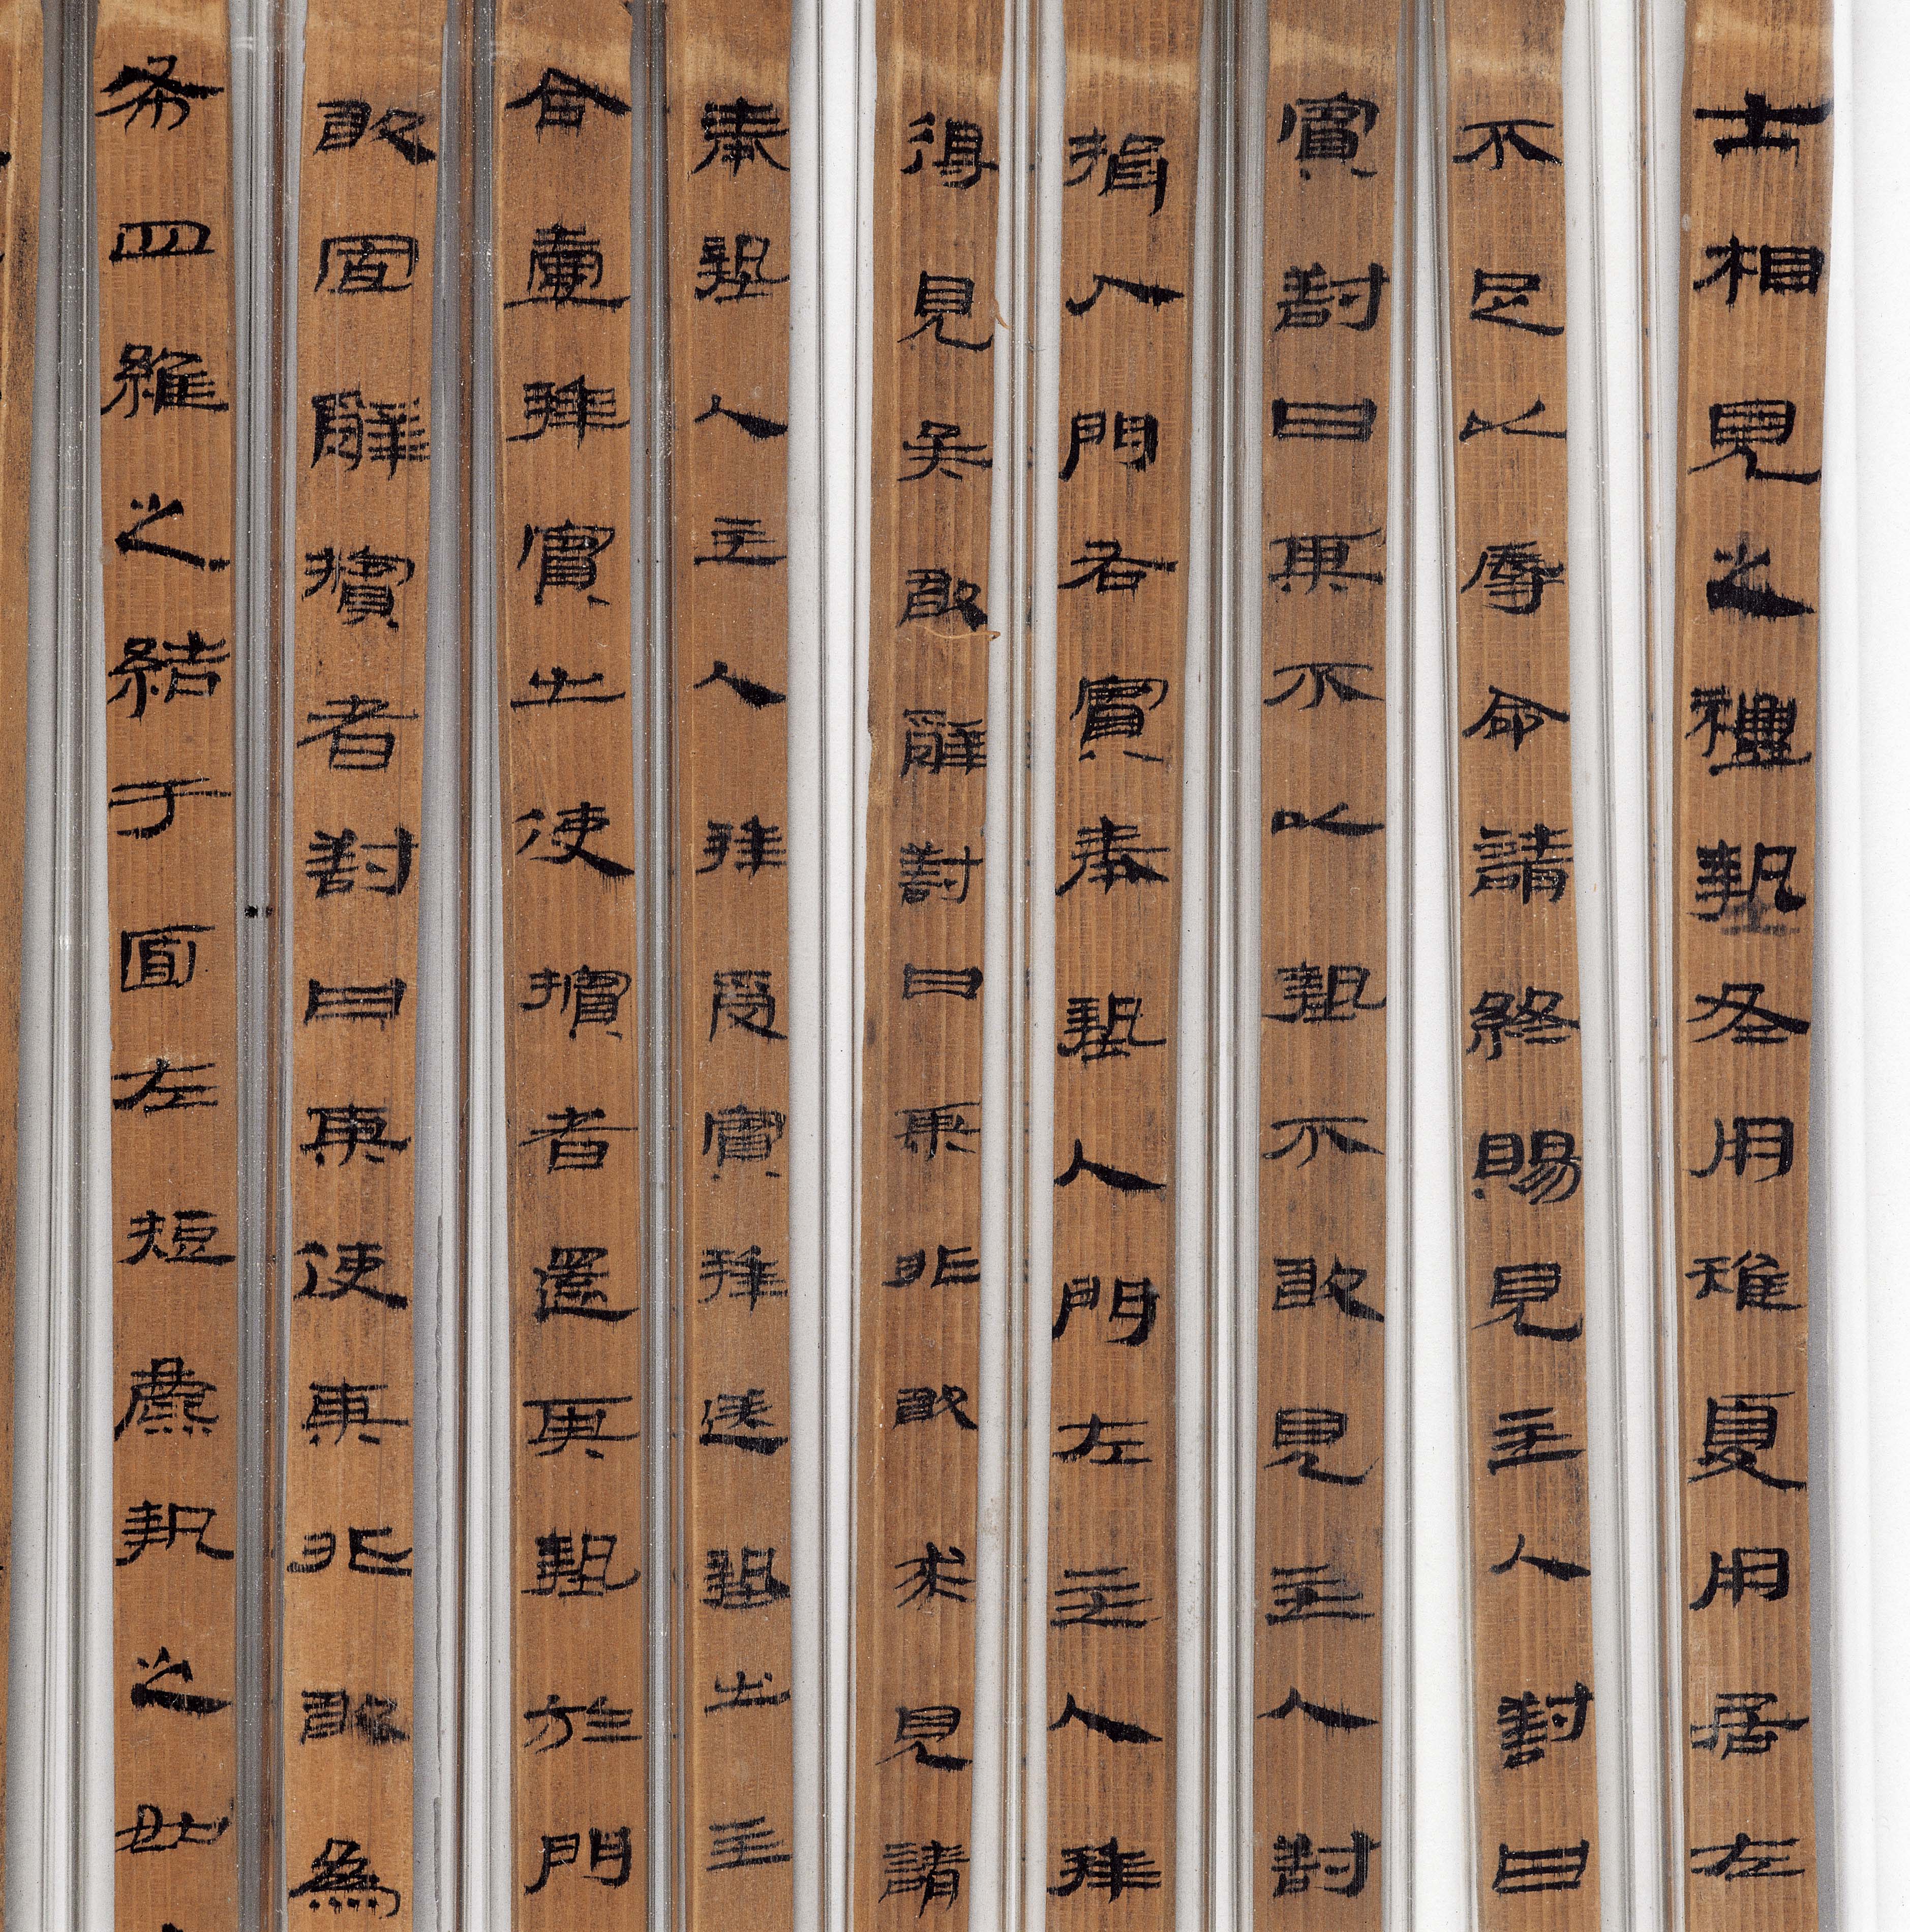 士相見之禮摯冬用雉夏用居左
不足以辱命請終賜見主人對曰
賓對曰某不以摯不敢見主人對
揖入門右賓奉摯入門左主人拜
得見矣敢辭對曰某非敢求見請
奉摯入主人拜受賓拜送摯出主
合壹拜賓出使擯者還其摯於門
敢固辭擯者對曰某使某非敢為
布四維之結于面左短麋執之如